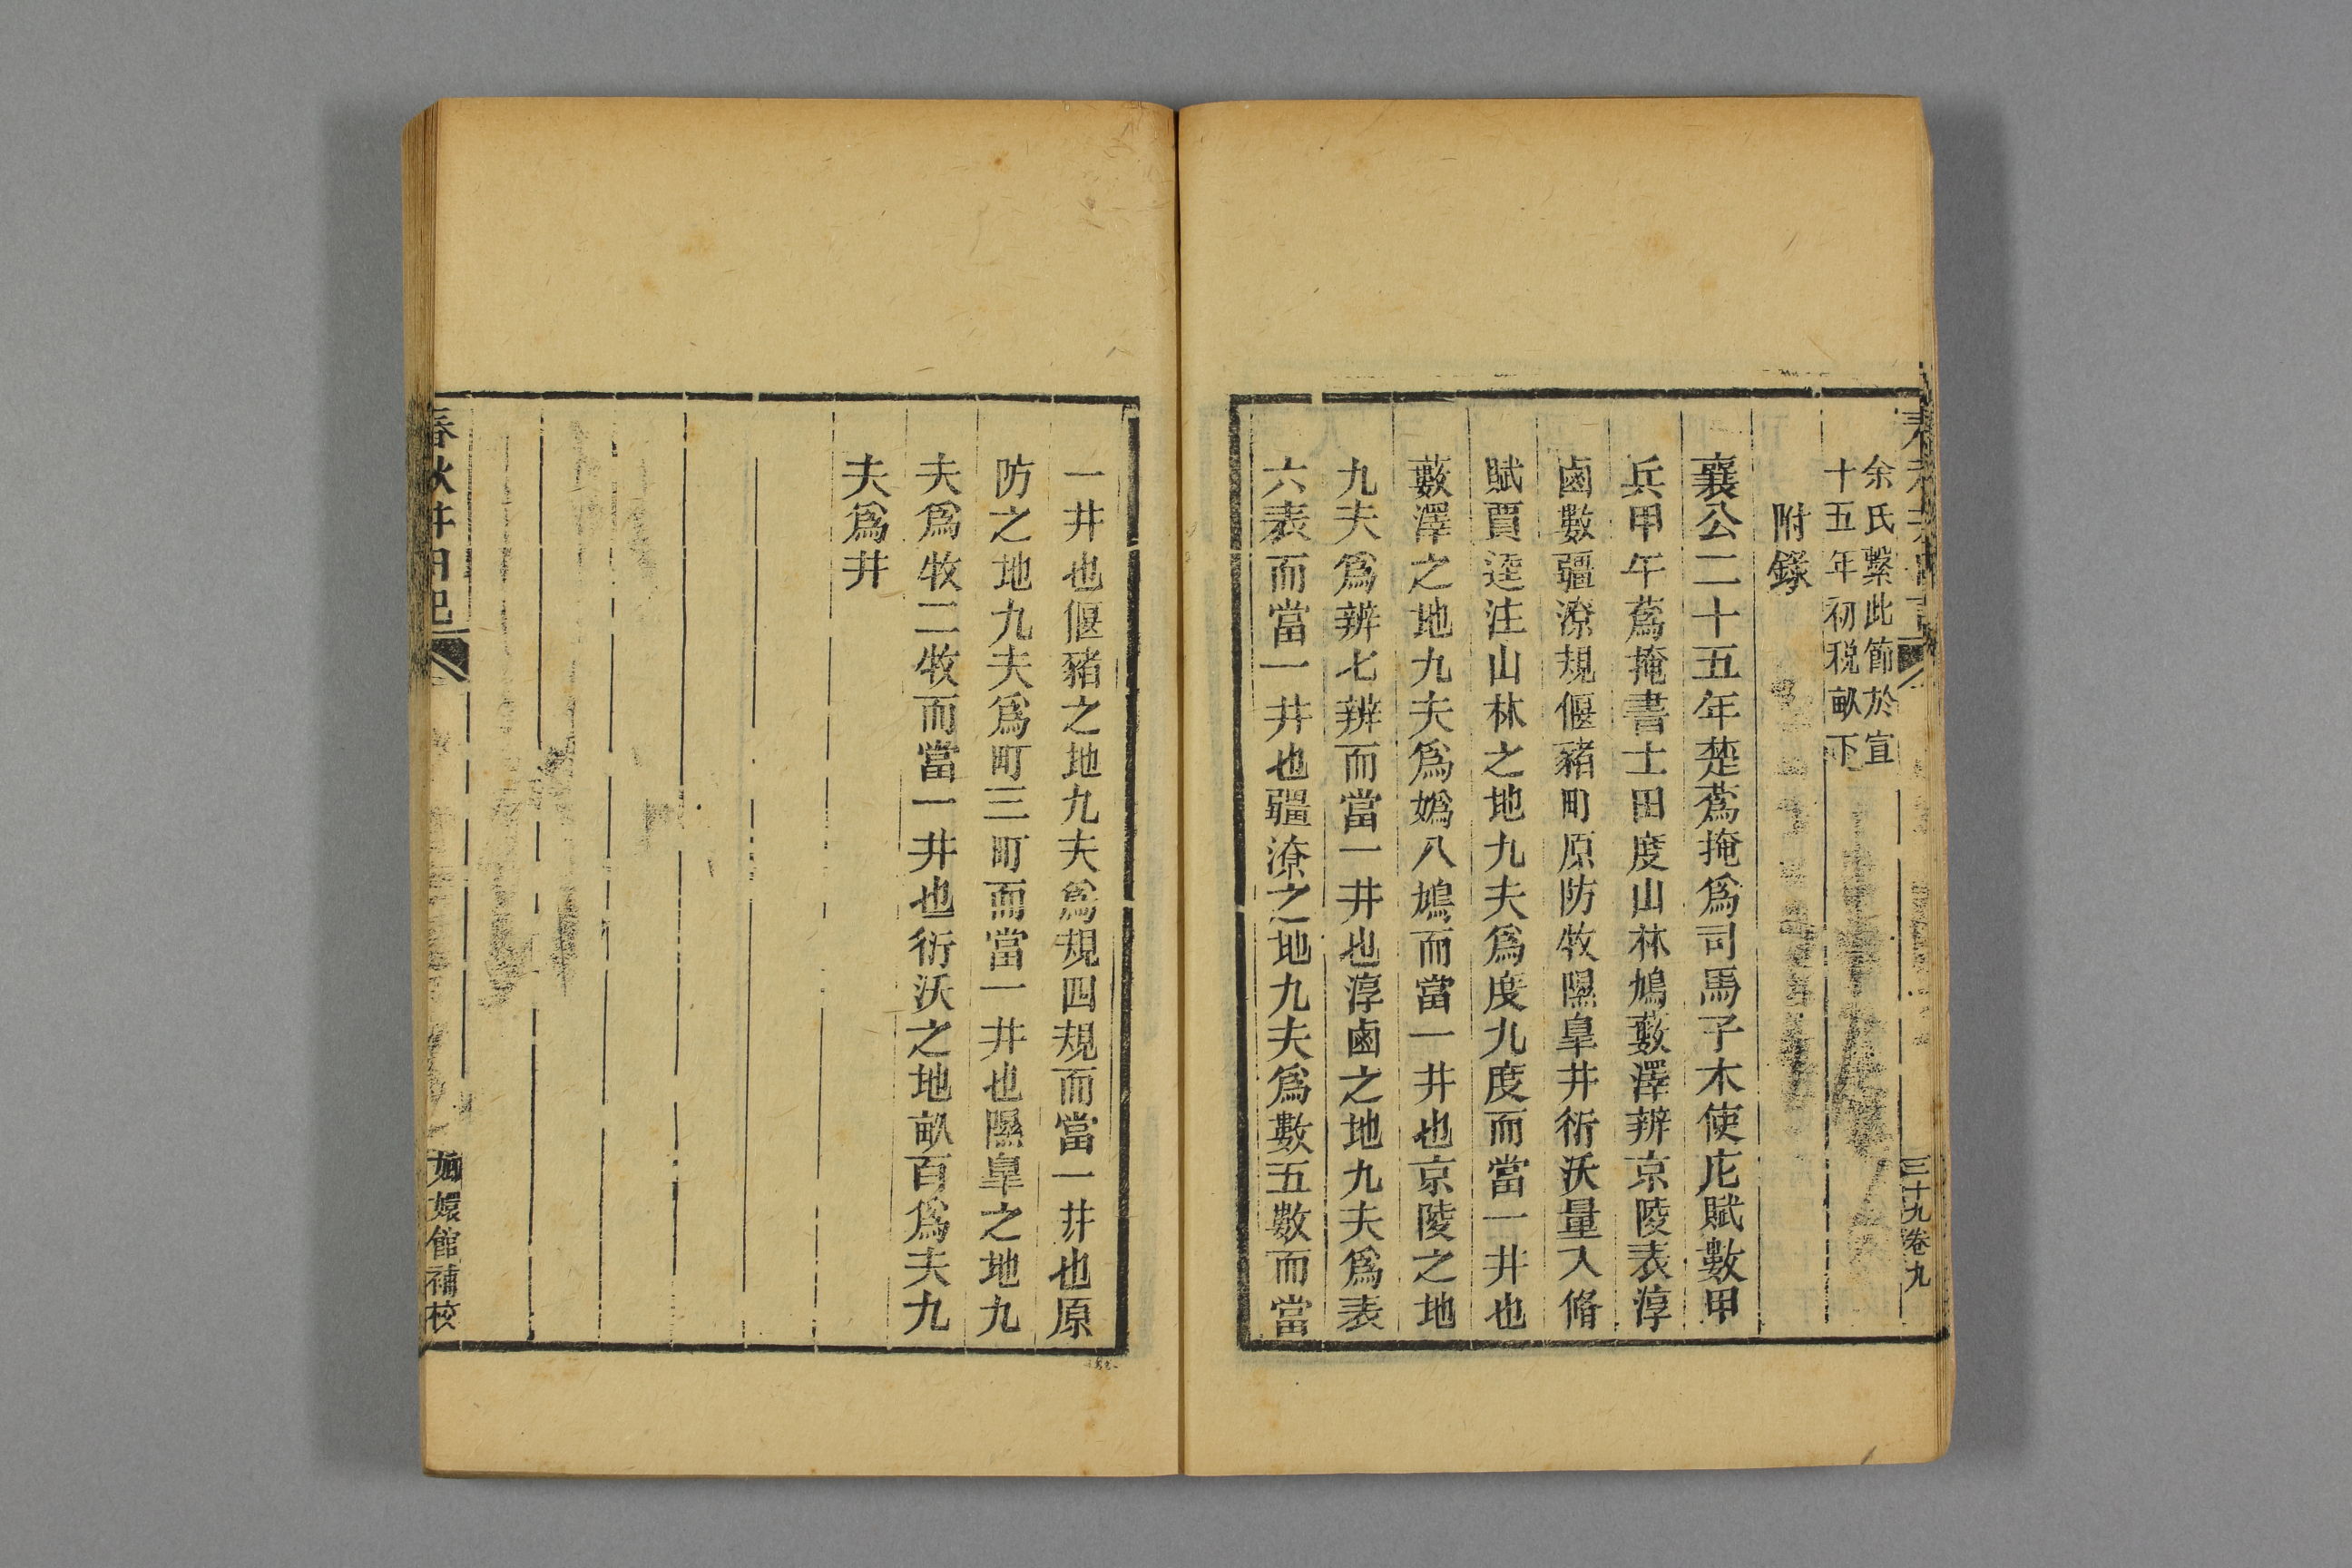 余氏繫此節於宣
十五年初稅畝下
附錄
襄公二十五年楚蒍掩爲司馬子木使庀賦數甲
兵甲午蒍掩書士田度山林鳩藪澤辨京陵表淳
鹵數疆潦規偃豬町原防牧隰臯井衍沃量入脩
賦賈逵注山林之地九夫爲度九度而當一井也
藪澤之地九夫爲鳩八鳩而當一井也京陵之地
九夫爲辨七辨而當一井也淳鹵之地九夫爲表
六表而當一井也疆潦之地九夫爲數五數而當
三十九卷九
一井也偃豬之地九夫爲規四規而當一井也原
防之地九夫爲町三町而當一井也隰臯之地九
夫爲牧二牧而當一井也衍沃之地畝百爲夫九
夫爲井
春秋井田記
嫏嬛館補校